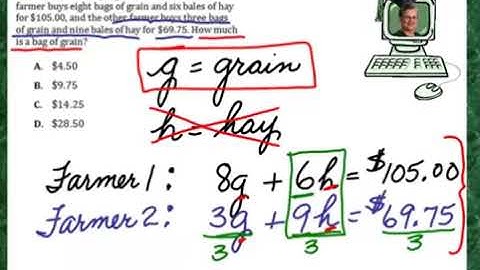 farmer buys eight bags of grain and six bales of hay
for $105.00, and the other farmer buys three bags
of grain and nine bales of hay for $69.75. How much
is a bag of grain?
A. $4.50
B. $9.75
C. $14.25
D. $28.50
g = grain
h = hay
Farmer 1: 8g + 6h = $105.00
Farmer 2: 3g + 9h = $69.75
3 3 3